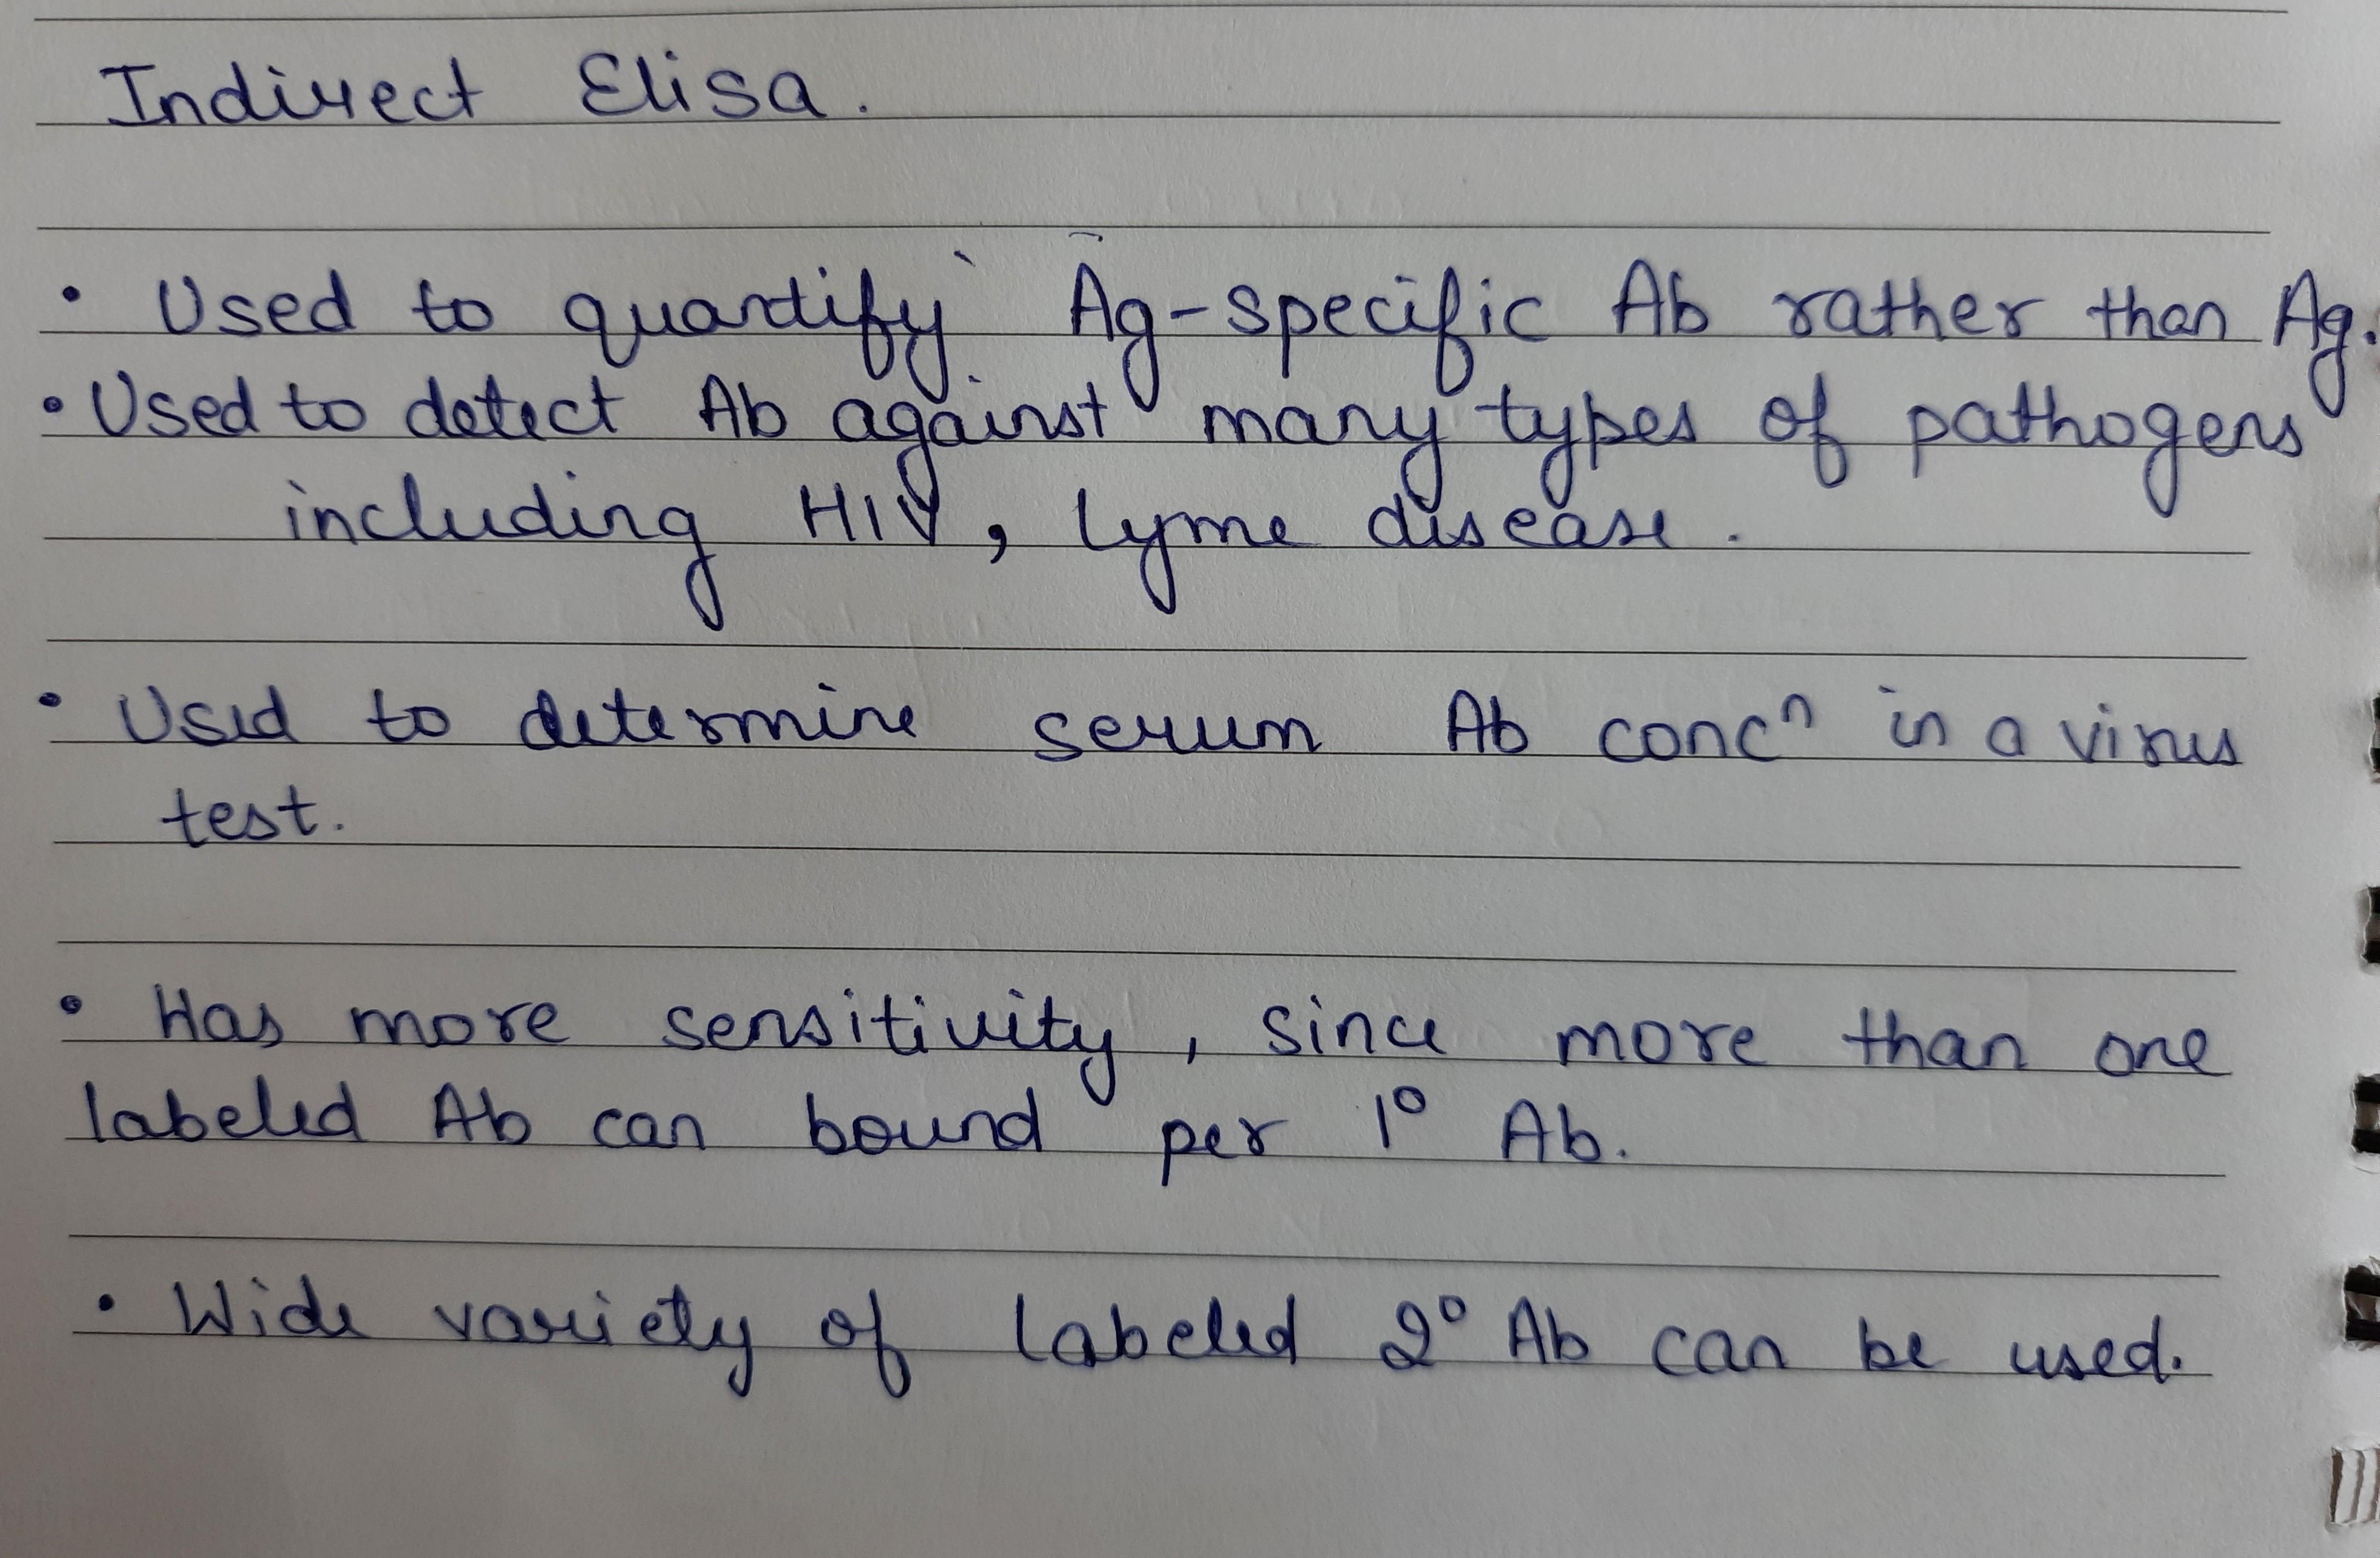 Indirect Elisa.
• Used to quantify Ag-specific Ab rather than Ag.
• Used to detect Ab against many types of pathogens
including HIV, lyme disease.
• Used to determine serum Ab concⁿ in a virus
test.
• Has more sensitivity, since more than one
labeled Ab can bound per 1° Ab.
• Wide variety of labeled 2° Ab can be used.